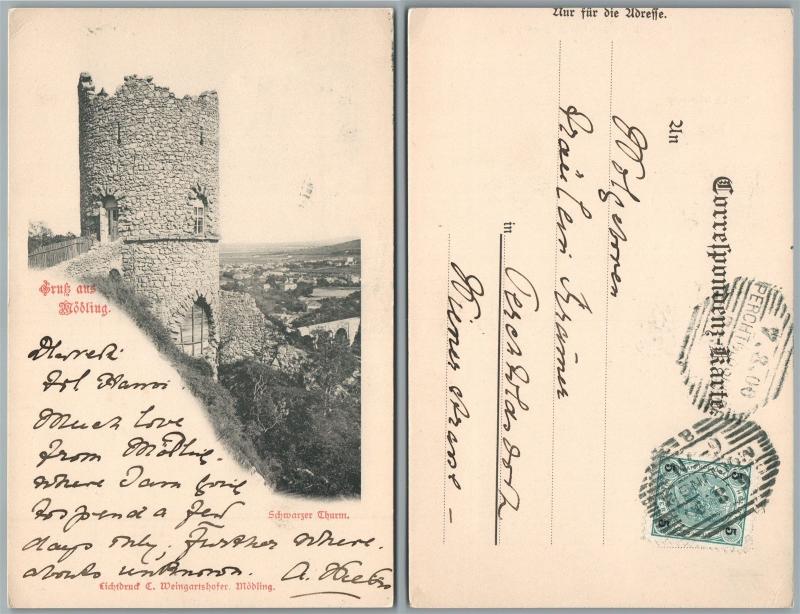 Gruß aus
Mödling.
Much love
from Mödling.
where I am going
to spend a few
days only, further where-
abouts unknown.
Schwarzer Thurm.
Lichtdruck C. Weingartshofer, Mödling.
Nur für die Adresse.
Correspondenz-Karte
An
Wohlgeboren
Fräulein Kramer
in
Perchtoldsdorf
Wiener Strasse
PERCHT
7.8.00
5
5
5